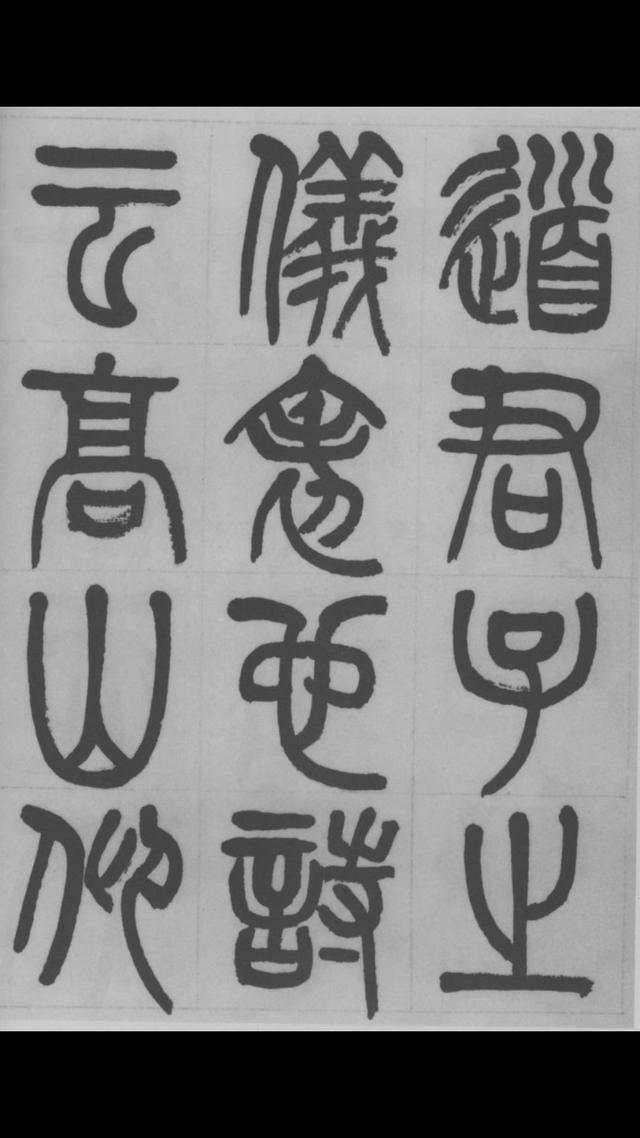 道君子之
儀表也詩
云高山仰